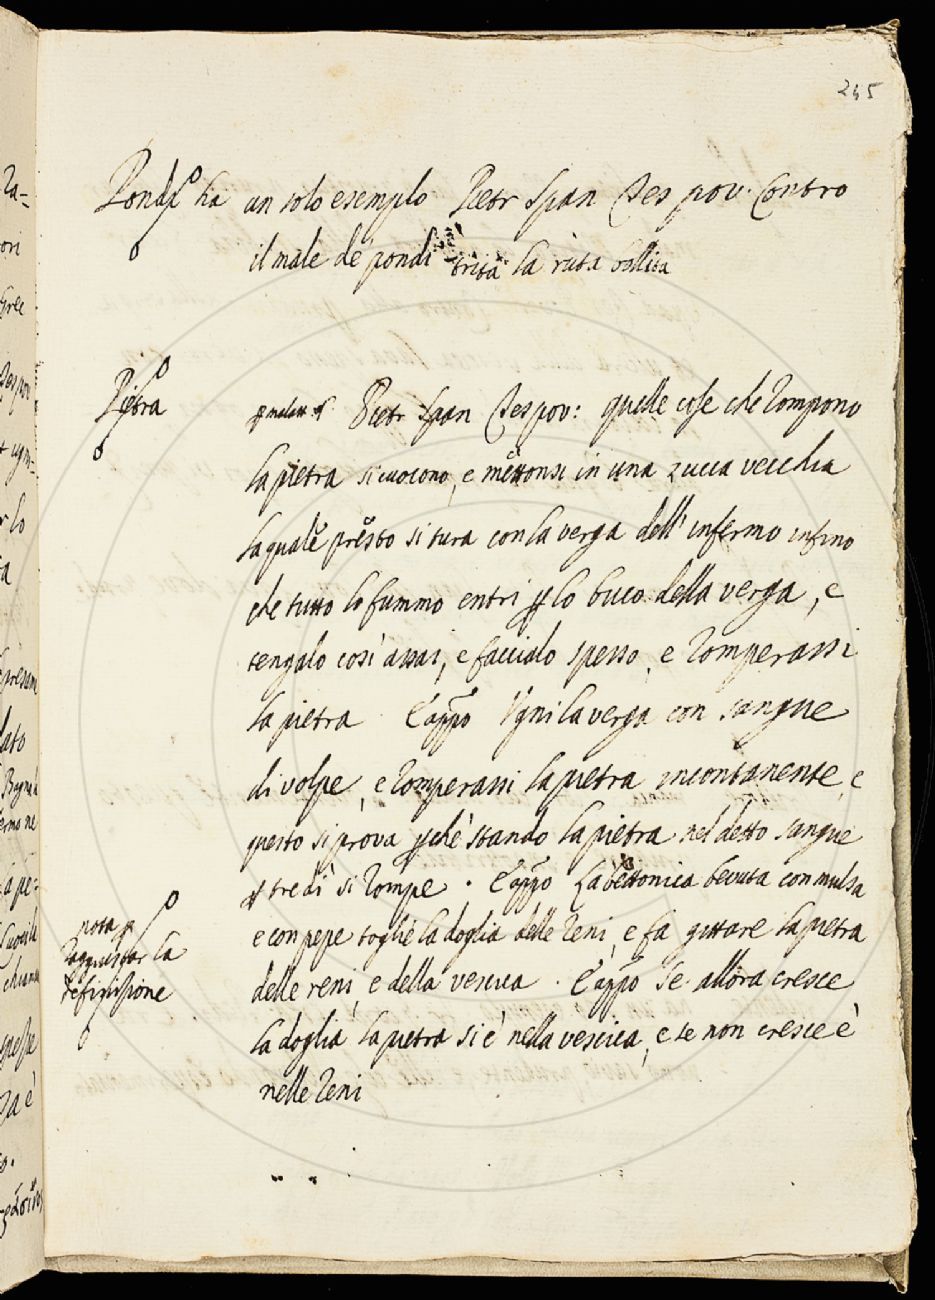 245
Pondi ha un solo esempio Pietr Span Tes pov. Contro
il male de pondi trita la ruta ballita
Pietra Pietr Span Tes pov: quelle cose che rompono
la pietra si cuocono, e mettonsi in una zucca vecchia
la quale presto si tura con la verga dell' infermo infino
che tutto lo fummo entri p lo buco della verga, e
tengalo così assai, e faccialo spesso, e romperassi
la pietra E appo Ugni la verga con sangue
di volpe, e romperassi la pietra incontanente, e
questo si prova pchè stando la pietra nel detto sangue
p tre dì si rompe. E appo La bettonica bevuta con mulsa
e con pepe toglie la doglia delle reni, e fa gittare la pietra
delle reni, e della vescica. E appo Se allora cresce
la doglia la pietra si è nella vescica, e se non cresce è
nelle reni
nota p
raggiustar la
definizione